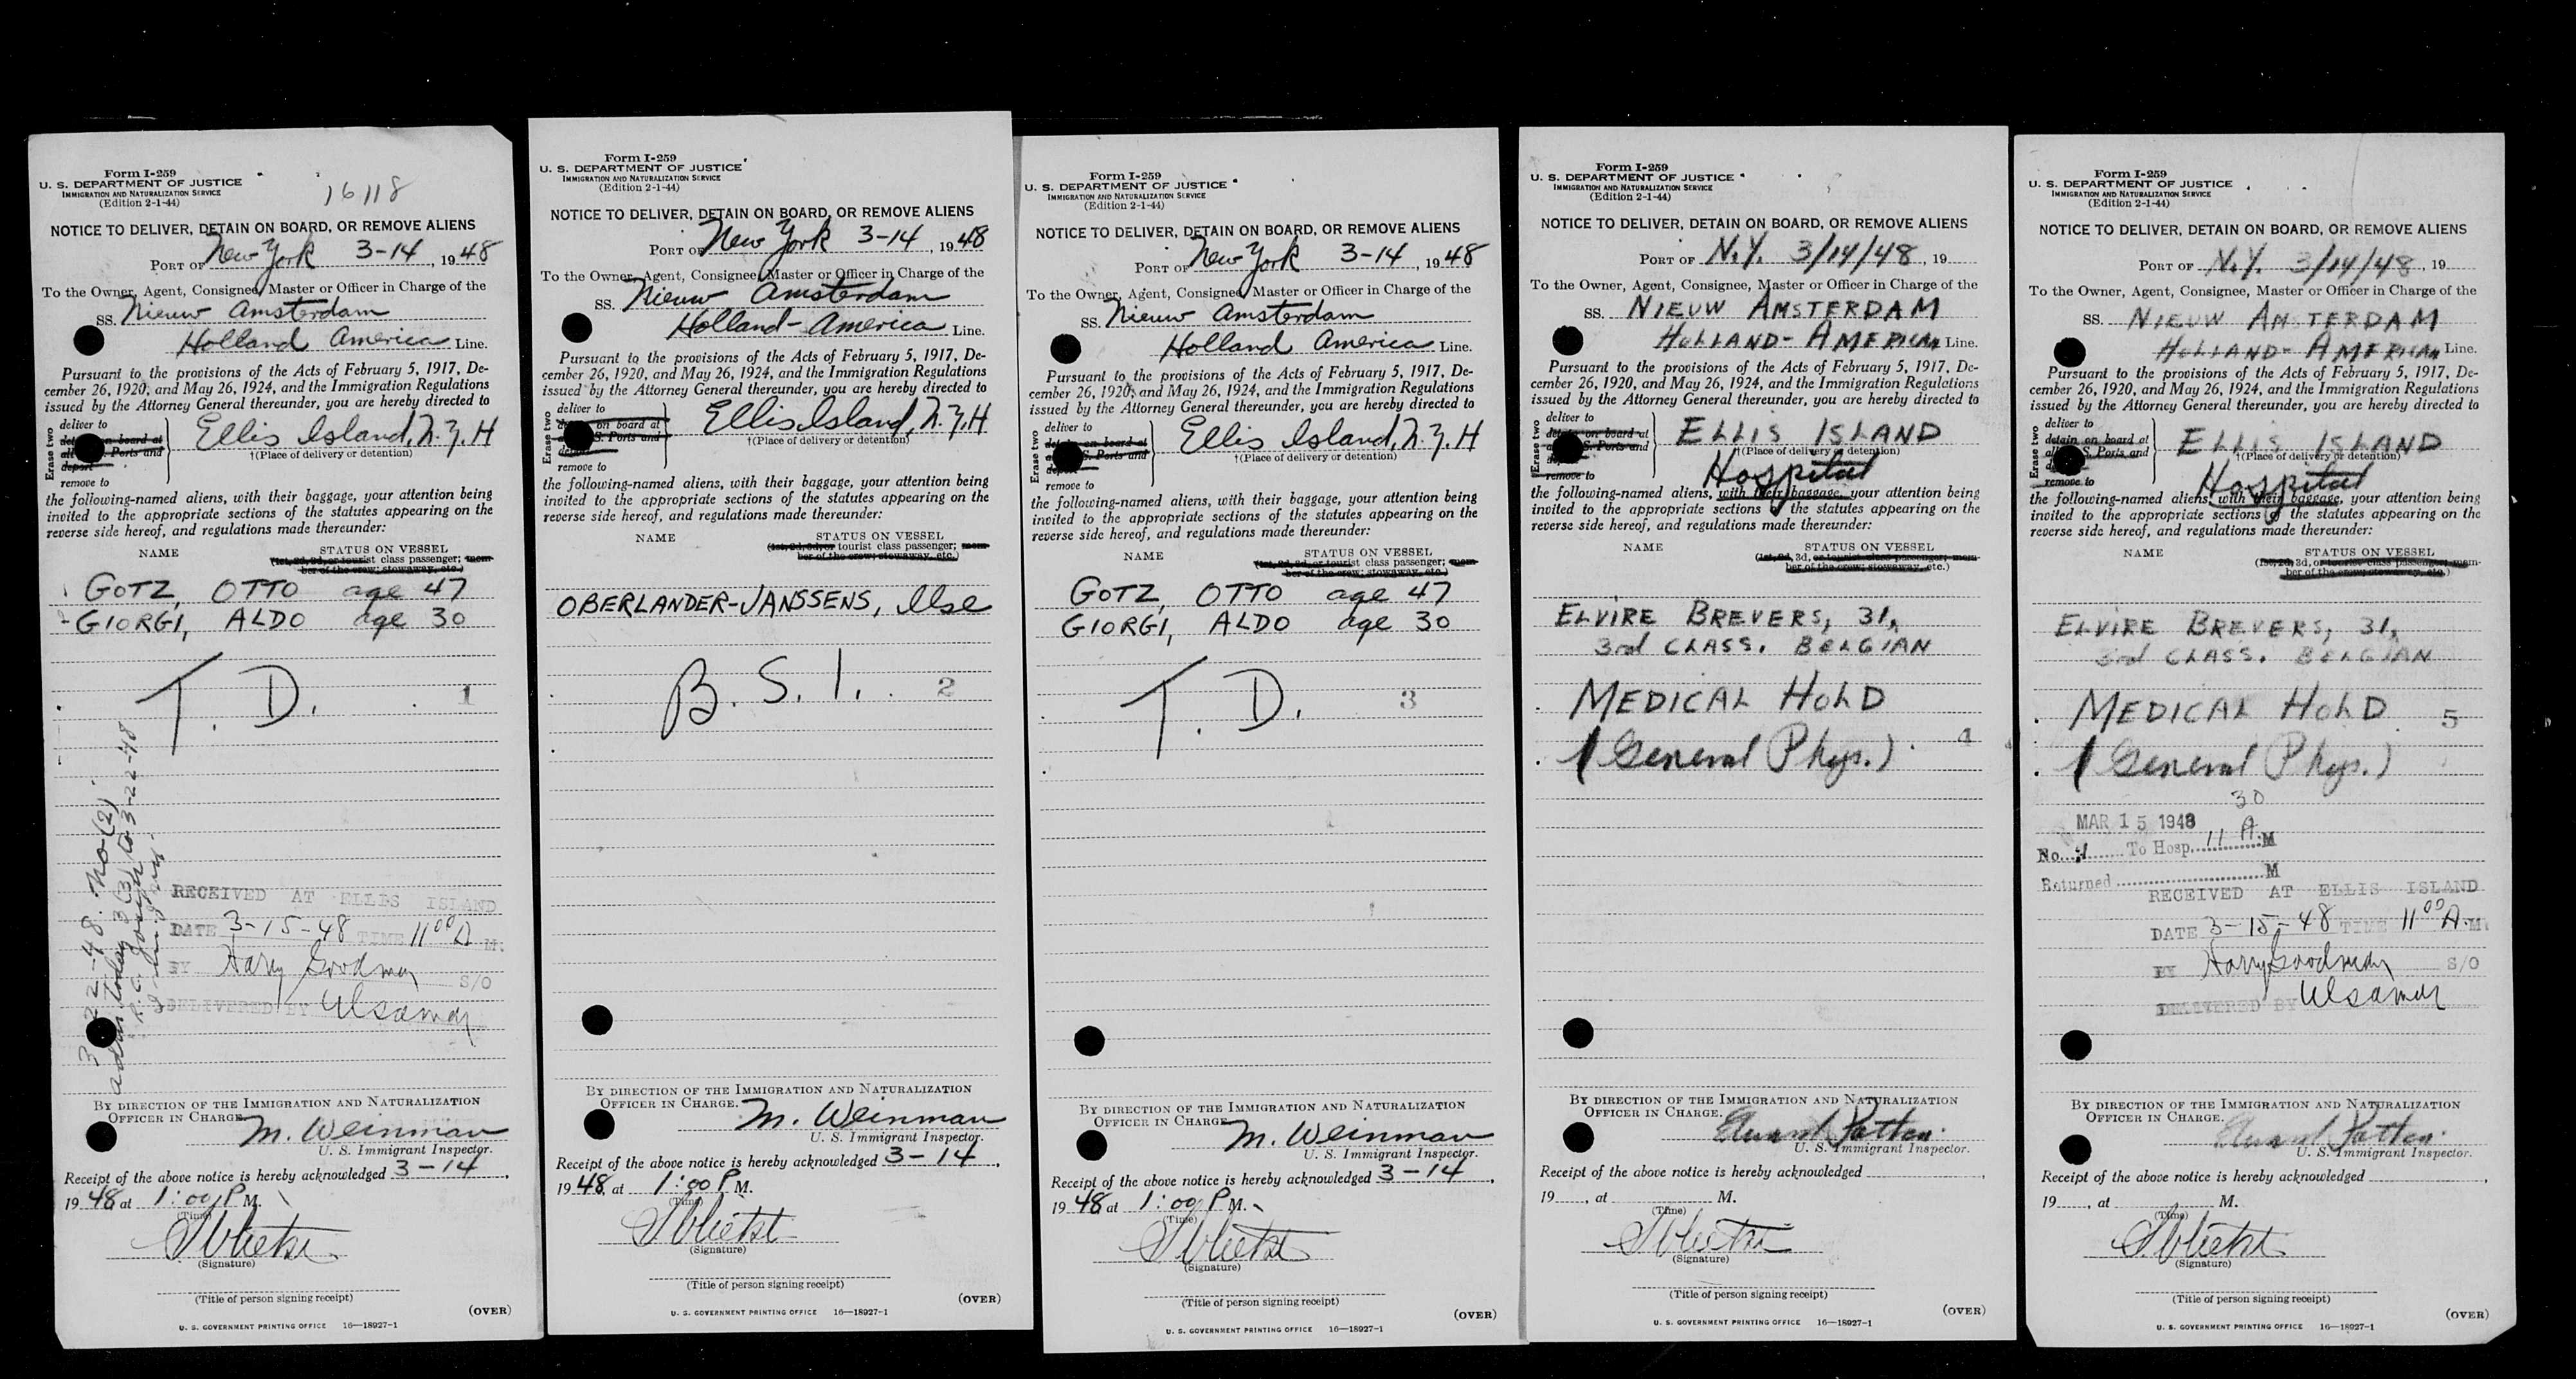 Form I-259
U. S. DEPARTMENT OF JUSTICE
IMMIGRATION AND NATURALIZATION SERVICE
(Edition 2-1-44)
16118
NOTICE TO DELIVER, DETAIN ON BOARD, OR REMOVE ALIENS
PORT OF New York 3-14, 1948
To the Owner, Agent, Consignee, Master or Officer in Charge of the
SS. Nieuw Amsterdam
Holland America Line.
Pursuant to the provisions of the Acts of February 5, 1917, De-
cember 26, 1920, and May 26, 1924, and the Immigration Regulations
issued by the Attorney General thereunder, you are hereby directed to
Erase two
deliver to
on board at
all Ports and
deport
remove to
Ellis Island, N.Y.H
†(Place of delivery or detention)
the following-named aliens, with their baggage, your attention being
invited to the appropriate sections of the statutes appearing on the
reverse side hereof, and regulations made thereunder:
NAME STATUS ON VESSEL
(1st, 2d, 3d, or tourist class passenger; mem-
ber of the crew; stowaway, etc.)
GOTZ, OTTO age 47
GIORGI, ALDO age 30
T. D.
1
3-22-48
RECEIVED AT ELLIS ISLAND
DATE 3-15-48 TIME 11 00 A M.
BY Harry Goodman S/O
DELIVERED BY
BY DIRECTION OF THE IMMIGRATION AND NATURALIZATION
OFFICER IN CHARGE.
M. Weinman
U. S. Immigrant Inspector.
Receipt of the above notice is hereby acknowledged 3-14,
1948 at 1:00 P M.
(Time)
(Signature)
(Title of person signing receipt)
(OVER)
U. S. GOVERNMENT PRINTING OFFICE 16—18927-1
Form I-259
U. S. DEPARTMENT OF JUSTICE
IMMIGRATION AND NATURALIZATION SERVICE
(Edition 2-1-44)
NOTICE TO DELIVER, DETAIN ON BOARD, OR REMOVE ALIENS
PORT OF New York 3-14, 1948
To the Owner, Agent, Consignee, Master or Officer in Charge of the
SS. Nieuw Amsterdam
Holland-America Line.
Pursuant to the provisions of the Acts of February 5, 1917, De-
cember 26, 1920, and May 26, 1924, and the Immigration Regulations
issued by the Attorney General thereunder, you are hereby directed to
Erase two
deliver to
on board at
S. Ports and
remove to
Ellis Island, N.Y.H
†(Place of delivery or detention)
the following-named aliens, with their baggage, your attention being
invited to the appropriate sections of the statutes appearing on the
reverse side hereof, and regulations made thereunder:
NAME STATUS ON VESSEL
(1st, 2d, 3d, or tourist class passenger; mem-
ber of the crew; stowaway, etc.)
OBERLANDER-JANSSENS, Ilse
B. S. I.
2
BY DIRECTION OF THE IMMIGRATION AND NATURALIZATION
OFFICER IN CHARGE.
M. Weinman
U. S. Immigrant Inspector.
Receipt of the above notice is hereby acknowledged 3-14,
1948, at 1:00 P M.
(Time)
(Signature)
(Title of person signing receipt)
(OVER)
U. S. GOVERNMENT PRINTING OFFICE 16—18927-1
Form I-259
U. S. DEPARTMENT OF JUSTICE
IMMIGRATION AND NATURALIZATION SERVICE
(Edition 2-1-44)
NOTICE TO DELIVER, DETAIN ON BOARD, OR REMOVE ALIENS
PORT OF New York 3-14, 1948
To the Owner, Agent, Consignee, Master or Officer in Charge of the
SS. Nieuw Amsterdam
Holland America Line.
Pursuant to the provisions of the Acts of February 5, 1917, De-
cember 26, 1920, and May 26, 1924, and the Immigration Regulations
issued by the Attorney General thereunder, you are hereby directed to
Erase two
deliver to
detain on board at
S. Ports and
remove to
Ellis Island, N.Y.H
†(Place of delivery or detention)
the following-named aliens, with their baggage, your attention being
invited to the appropriate sections of the statutes appearing on the
reverse side hereof, and regulations made thereunder:
NAME STATUS ON VESSEL
(1st, 2d, 3d, or tourist class passenger; mem-
ber of the crew; stowaway, etc.)
GOTZ, OTTO age 47
GIORGI, ALDO age 30
T. D.
3
BY DIRECTION OF THE IMMIGRATION AND NATURALIZATION
OFFICER IN CHARGE
M. Weinman
U. S. Immigrant Inspector.
Receipt of the above notice is hereby acknowledged 3-14,
1948 at 1:00 P M.
(Time)
(Signature)
(Title of person signing receipt)
(OVER)
U. S. GOVERNMENT PRINTING OFFICE 16—18927-1
Form I-259
U. S. DEPARTMENT OF JUSTICE
IMMIGRATION AND NATURALIZATION SERVICE
(Edition 2-1-44)
NOTICE TO DELIVER, DETAIN ON BOARD, OR REMOVE ALIENS
PORT OF N.Y. 3/14/48, 19
To the Owner, Agent, Consignee, Master or Officer in Charge of the
SS. NIEUW AMSTERDAM
HOLLAND-AMERICAN Line.
Pursuant to the provisions of the Acts of February 5, 1917, De-
cember 26, 1920, and May 26, 1924, and the Immigration Regulations
issued by the Attorney General thereunder, you are hereby directed to
Erase two
deliver to
detain on board at
S. Ports and
remove to
ELLIS ISLAND
†(Place of delivery or detention)
Hospital
the following-named aliens, with their baggage, your attention being
invited to the appropriate sections of the statutes appearing on the
reverse side hereof, and regulations made thereunder:
NAME STATUS ON VESSEL
(1st, 2d, 3d, or tourist class passenger; mem-
ber of the crew; stowaway, etc.)
ELVIRE BREVERS, 31,
3rd CLASS. BELGIAN
MEDICAL HOLD
(General Phys.)
4
BY DIRECTION OF THE IMMIGRATION AND NATURALIZATION
OFFICER IN CHARGE.
Edward Patten
U. S. Immigrant Inspector.
Receipt of the above notice is hereby acknowledged
19, at M.
(Time)
(Signature)
(Title of person signing receipt)
(OVER)
U. S. GOVERNMENT PRINTING OFFICE 16—18927-1
Form I-259
U. S. DEPARTMENT OF JUSTICE
IMMIGRATION AND NATURALIZATION SERVICE
(Edition 2-1-44)
NOTICE TO DELIVER, DETAIN ON BOARD, OR REMOVE ALIENS
PORT OF N.Y. 3/14/48, 19
To the Owner, Agent, Consignee, Master or Officer in Charge of the
SS. NIEUW AMSTERDAM
HOLLAND-AMERICAN Line.
Pursuant to the provisions of the Acts of February 5, 1917, De-
cember 26, 1920, and May 26, 1924, and the Immigration Regulations
issued by the Attorney General thereunder, you are hereby directed to
Erase two
deliver to
detain on board at
all S. Ports and
remove to
ELLIS ISLAND
†(Place of delivery or detention)
Hospital
the following-named aliens, with their baggage, your attention being
invited to the appropriate sections of the statutes appearing on the
reverse side hereof, and regulations made thereunder:
NAME STATUS ON VESSEL
(1st, 2d, 3d, or tourist class passenger; mem-
ber of the crew; stowaway, etc.)
ELVIRE BREVERS, 31,
3rd CLASS. BELGIAN
MEDICAL HOLD
5
(General Phys.)
30
MAR 15 1948
No. To Hosp. 11 A.M
Returned M
RECEIVED AT ELLIS ISLAND
DATE 3-15-48 TIME 11 00 A.M.
BY Harry Goodman S/O
DELIVERED BY
BY DIRECTION OF THE IMMIGRATION AND NATURALIZATION
OFFICER IN CHARGE.
Edward Patten
U. S. Immigrant Inspector.
Receipt of the above notice is hereby acknowledged
19, at M.
(Time)
(Signature)
(Title of person signing receipt)
(OVER)
U. S. GOVERNMENT PRINTING OFFICE 16—18927-1